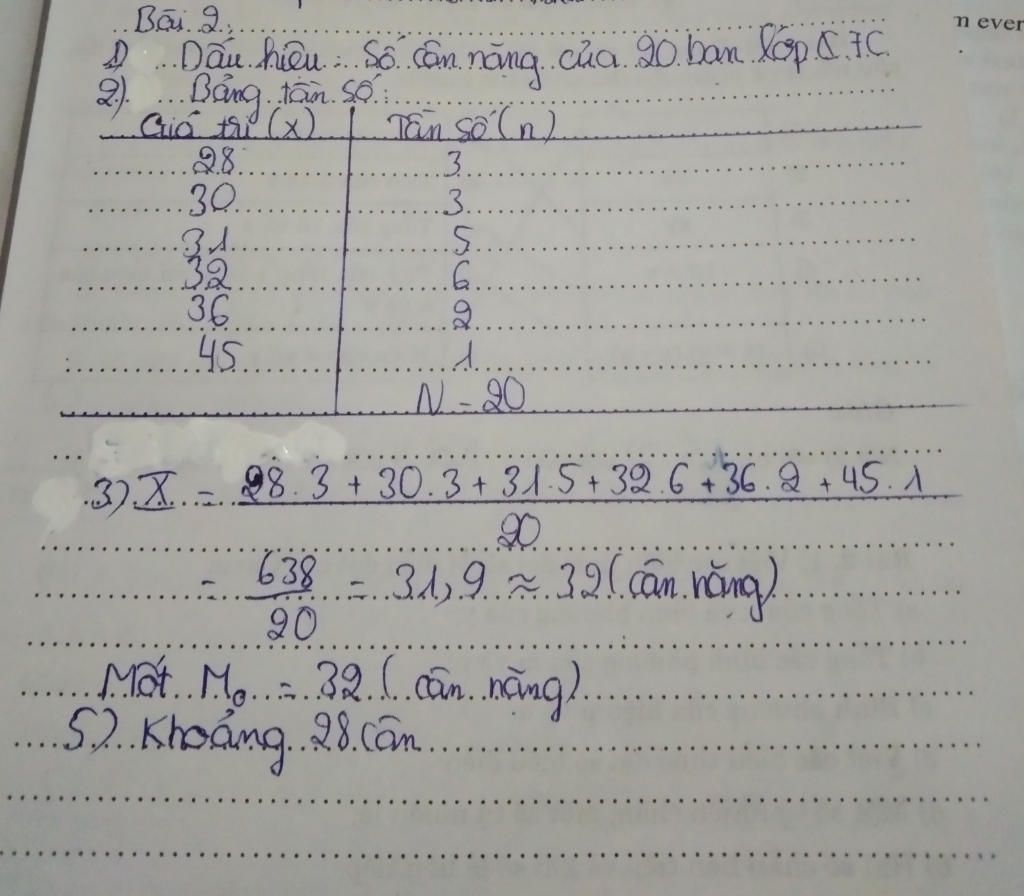 Bài 2:
n ever
1) Dấu hiệu: Số cân nặng của 20 bạn lớp 7C.
2) Bảng tần số:
Giá trị (x) Tần số (n)
28 3
30 3
31 5
32 6
36 2
45 1
N = 20
3) X = 28.3 + 30.3 + 31.5 + 32.6 + 36.2 + 45.1
20
= 638 = 31,9 ≈ 32 (cân nặng)
20
Mốt M₀ = 32 (cân nặng)
5) Khoảng 28 cân